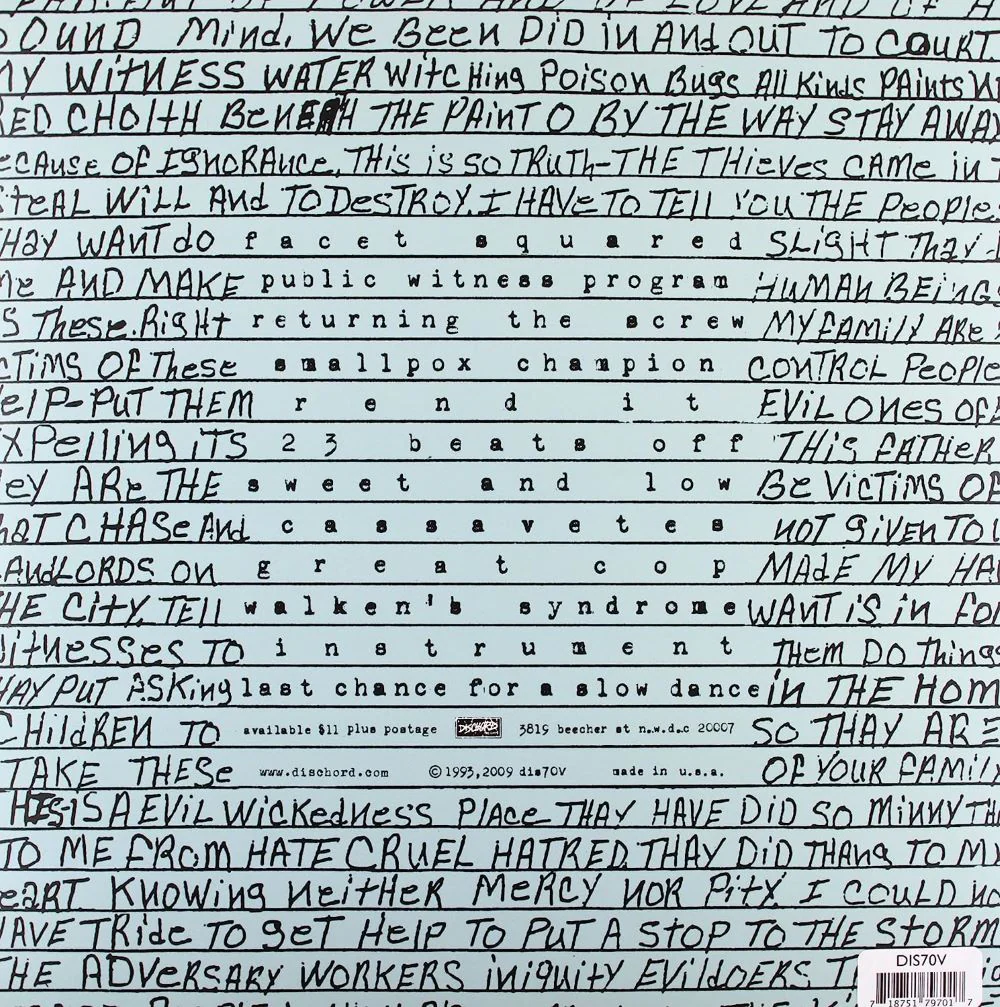 OUND MinD, WE BEEN DiD in ANd OUT TO COURT
MY WITNESS WATER WITCHing POiSON BUgS All KinDs PAints
RED CHOItH BENEAH THE PAinT O BY THE WAY STAY AWAY
ECAUSE OF IGNORAnce, THis is SO TRUTh-THE THieVes CAMe in
STEAL WiLL ANd TO DesTROY. I HAVe TO TELL YOU THE PeoPle
THAY WANT dO facet squared SLIGHT THAY
Me AND MAKE public witness program HUMAN BEiNGS
S THese. RiGHt returning the screw MY FAMily ARe
CTiMS OF THese smallpox champion CONTROL PeoPle
elP-PUT THEM rend it EViL ONes OF
XPelling iTS 23 beats off THiS FATHER
ey ARe THE sweet and low Be VicTiMS OF
hAT CHASe ANd cassavetes NOT giVEN TO
LANdLORDS ON great cop MAdE MY HA
HE CiTY. TELL walken's syndrome WANT iS in FO
WitNeSSeS TO instrument THeM DO THings
HAY PUT ASKing last chance for a slow dance in THE HOM
CHildREN TO available $11 plus postage DISCHORD 3819 beecher st n.w.d.c 20007 SO THAY ARE
TAKE THESe www.dischord.com ©1993,2009 dis70V made in u.s.a. OF YOUR FAMily
THiS iS A EViL WicKedNesS PlAce THAY HAVE DiD SO MiNNY
TO ME FROM HATE CRUEL HATRED. THAY DiD THANg TO MY
eART KNOWing NeiTHeR MeRCY NOR PiTY. I COULD
HAVE TRide TO geT HelP TO PUT A STOP TO THE STORM
THE ADVeRSARY WORKERS iniquity EVilDOERS.
DIS70V
7 18751 79701 7